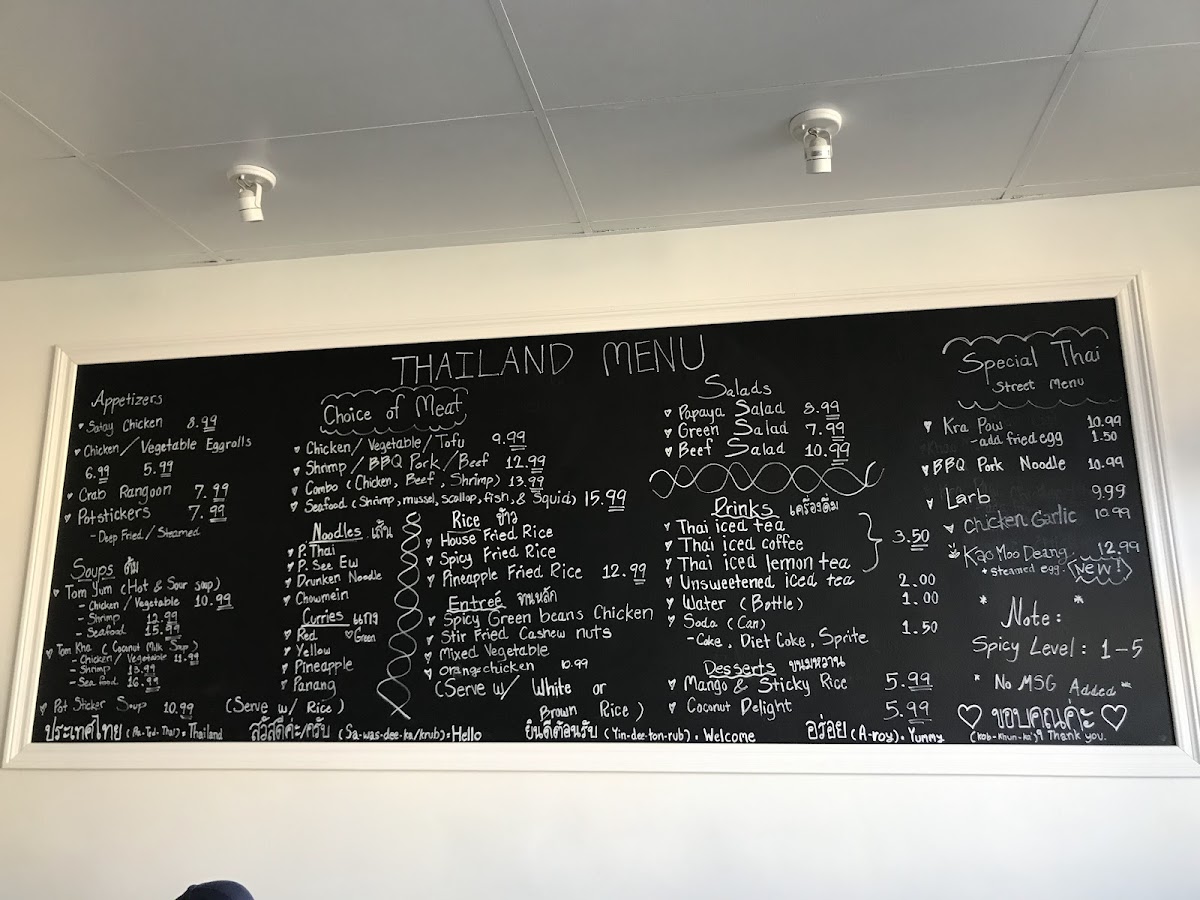 THAILAND MENU
Appetizers
Satay Chicken 8.99
Chicken/Vegetable Eggrolls
6.99 5.99
Crab Rangoon 7.99
Potstickers 7.99
- Deep Fried / Steamed
Soups ต้ม
Tom Yum (Hot & Sour soup)
- Chicken / Vegetable 10.99
- Shrimp 12.99
- Seafood 15.99
Tom Kha (Coconut Milk Soup)
- Chicken / Vegetable 11.99
- Shrimp 13.99
- Sea food 16.99
Pot Sticker Soup 10.99
Choice of Meat
Chicken/Vegetable/Tofu 9.99
Shrimp/BBQ Pork/Beef 12.99
Combo (Chicken, Beef, Shrimp) 13.99
Seafood (Shrimp, mussel, scallop, fish, & Squid) 15.99
Noodles เส้น
P. Thai
P. See Ew
Drunken Noodle
Chowmein
Curries แกง
Red Green
Yellow
Pineapple
Panang
(Serve w/ Rice)
Rice ข้าว
House Fried Rice
Spicy Fried Rice
Pineapple Fried Rice 12.99
Entreé จานหลัก
Spicy Green beans Chicken
Stir Fried Cashew nuts
Mixed Vegetable
Orange chicken 10.99
(Serve w/ White or
Brown Rice)
Salads
Papaya Salad 8.99
Green Salad 7.99
Beef Salad 10.99
Drinks เครื่องดื่ม
Thai iced tea
Thai iced coffee 3.50
Thai iced lemon tea
Unsweetened iced tea 2.00
Water (Bottle) 1.00
Soda (Can) 1.50
- Coke, Diet Coke, Sprite
Desserts ขนมหวาน
Mango & Sticky Rice 5.99
Coconut Delight 5.99
Special Thai
Street Menu
Kra Pow 10.99
- add fried egg 1.50
BBQ Pork Noodle 10.99
Larb 9.99
Chicken Garlic 10.99
Kao Moo Deang 12.99
+ steamed egg. NEW!
* Note: *
Spicy Level: 1-5
* No MSG Added *
ขอบคุณค่ะ
(Kob-Khun-ka) Thank you.
ประเทศไทย = Thailand
สวัสดีค่ะ/ครับ (Sa-was-dee-ka/krub) = Hello
ยินดีต้อนรับ (Yin-dee-ton-rub) = Welcome
อร่อย (A-roy) = Yummy